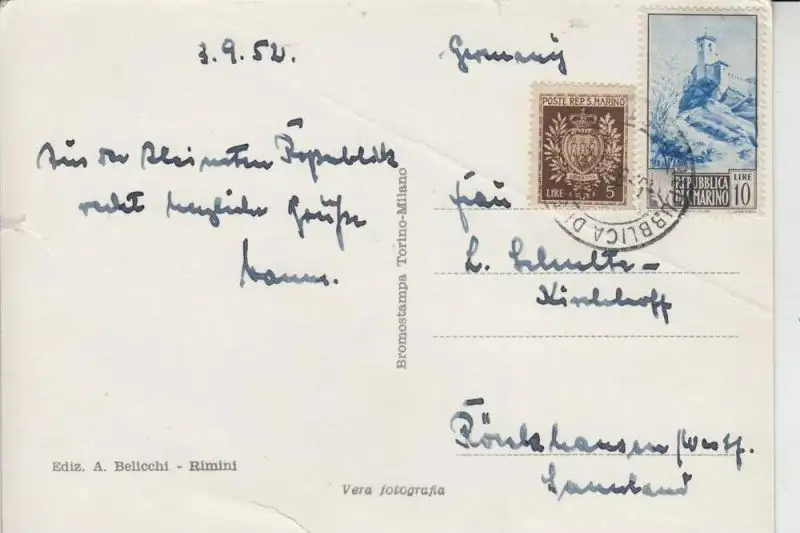 3.9.52.
Aus der kleinsten Republik
recht herzliche Grüße
Hanns.
Ediz. A. Belicchi - Rimini
Vera fotografia
Bromostampa Torino-Milano
Germany
POSTE REP. S. MARINO
LIRE 5
REPUBBLICA
S. MARINO
LIRE
10
REPUBBLICA DI
Frau
L. Schulte-
Kirchhoff
Rönkhausen/Westf.
Sauerland